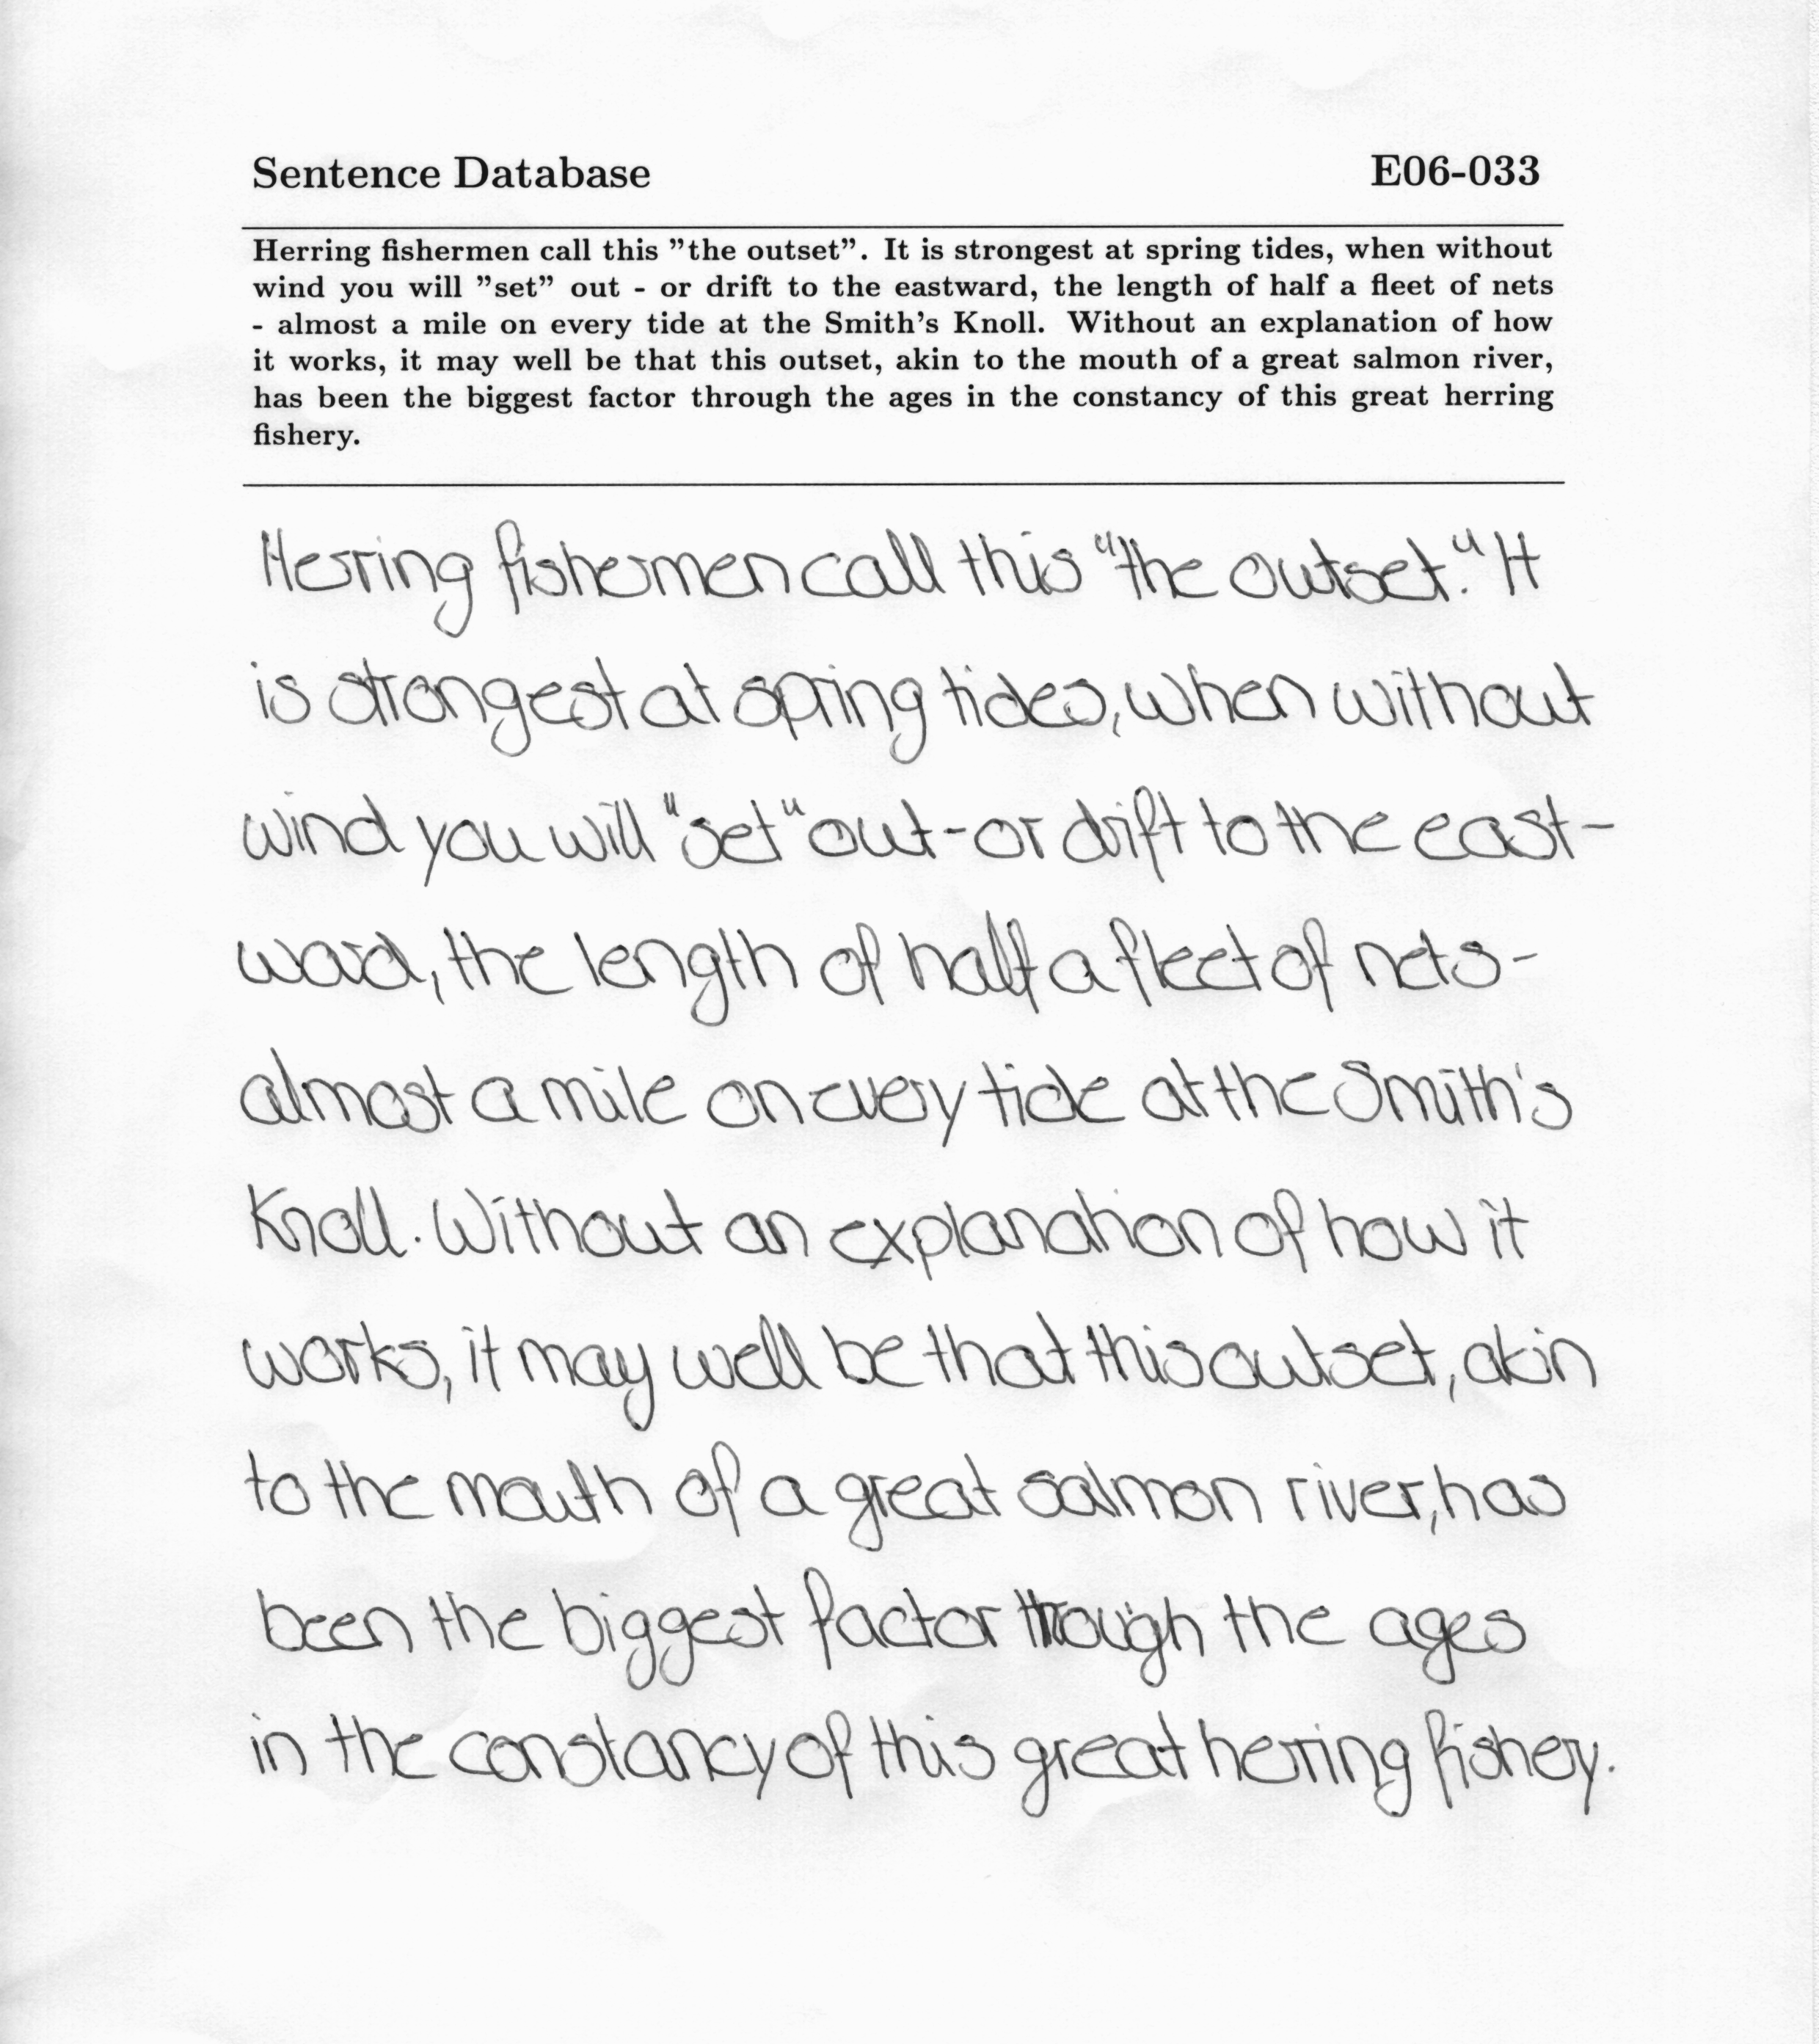 Sentence Database E06-033
Herring fishermen call this "the outset". It is strongest at spring tides, when without
wind you will "set" out - or drift to the eastward, the length of half a fleet of nets
- almost a mile on every tide at the Smith's Knoll. Without an explanation of how
it works, it may well be that this outset, akin to the mouth of a great salmon river,
has been the biggest factor through the ages in the constancy of this great herring
fishery.
Herring fishermen call this "the outset." It
is strongest at spring tides, when without
wind you will "set" out - or drift to the east-
ward, the length of half a fleet of nets -
almost a mile on every tide at the Smith's
Knoll. Without an explanation of how it
works, it may well be that this outset, akin
to the mouth of a great salmon river, has
been the biggest factor through the ages
in the constancy of this great herring fishery.